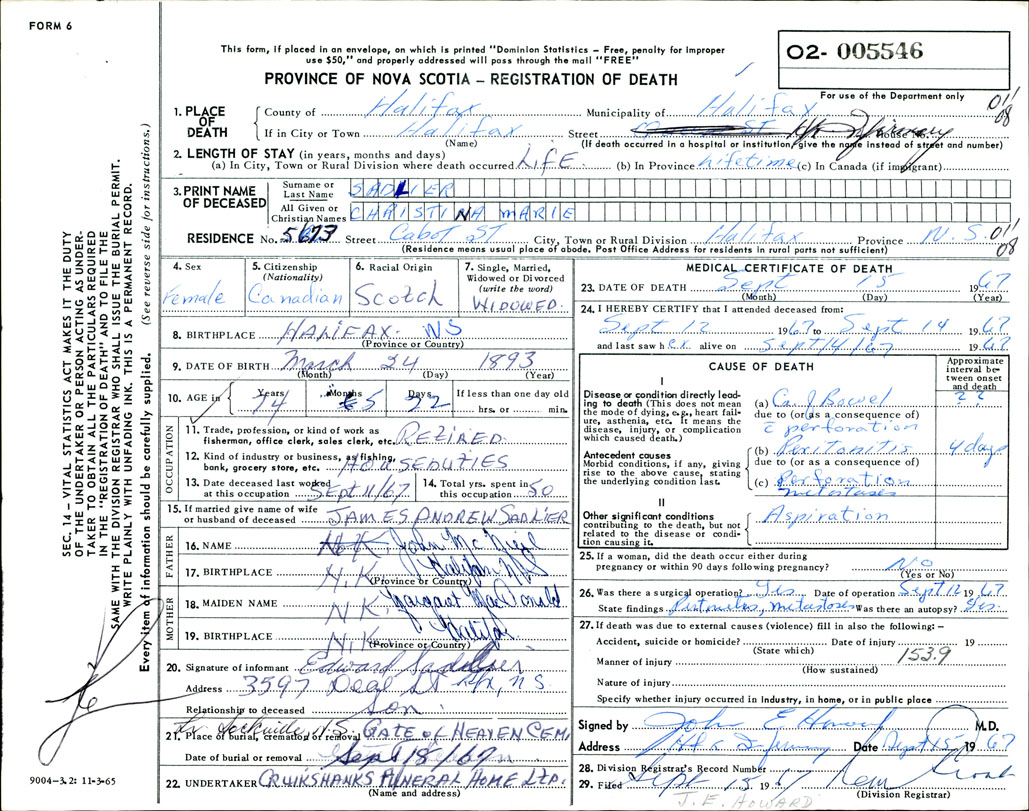 FORM 6
This form, if placed in an envelope, on which is printed "Dominion Statistics – Free, penalty for improper
use $50," and properly addressed will pass through the mail "FREE"
O2- 005546
PROVINCE OF NOVA SCOTIA – REGISTRATION OF DEATH
For use of the Department only
011
08
1. PLACE OF DEATH
County of Halifax Municipality of Halifax
If in City or Town Halifax Street Hfx Infirmary House No.
(Name) (If death occurred in a hospital or institution, give the name instead of street and number)
2. LENGTH OF STAY (in years, months and days)
(a) In City, Town or Rural Division where death occurred LIFE (b) In Province lifetime (c) In Canada (if immigrant)
3. PRINT NAME OF DECEASED
Surname or Last Name SADLIER
All Given or Christian Names CHRISTINA MARIE
RESIDENCE No. 5673 Street Cabot ST City, Town or Rural Division Halifax Province N.S. 011
08
(Residence means usual place of abode. Post Office Address for residents in rural parts not sufficient)
4. Sex Female
5. Citizenship (Nationality) Canadian
6. Racial Origin Scotch
7. Single, Married, Widowed or Divorced (write the word) WIDOWED.
8. BIRTHPLACE HALIFAX. NS
(Province or Country)
9. DATE OF BIRTH March 24 1893
(Month) (Day) (Year)
10. AGE in Years 74 Months 5 Days 22 If less than one day old
hrs. or min.
OCCUPATION
11. Trade, profession, or kind of work as
fisherman, office clerk, sales clerk, etc. RETIRED.
12. Kind of industry or business, as fishing,
bank, grocery store, etc. HOUSEDUTIES
13. Date deceased last worked
at this occupation Sept 11/67
14. Total yrs. spent in
this occupation 50
15. If married give name of wife
or husband of deceased JAMES ANDREW SADLIER
FATHER
16. NAME N.K. John McNeil
17. BIRTHPLACE N.K. Halifax NS
(Province or Country)
MOTHER
18. MAIDEN NAME N.K. Margaret MacDonald
19. BIRTHPLACE N.K. Halifax
(Province or Country)
20. Signature of informant Edward Sadlier
Address 3597 St Hfx, N.S.
Relationship to deceased Son
21. Place of burial, cremation or removal Lr Sackville N.S. GATE OF HEAVEN CEM.
Date of burial or removal Sept 18/67
22. UNDERTAKER CRUIKSHANKS FUNERAL HOME LTD.
(Name and address)
MEDICAL CERTIFICATE OF DEATH
23. DATE OF DEATH Sept 15 1967
(Month) (Day) (Year)
24. I HEREBY CERTIFY that I attended deceased from:
Sept 12 1967 to Sept 14 1967
and last saw her alive on Sept 14/67 1967
CAUSE OF DEATH
Approximate interval between onset and death
I
Disease or condition directly leading to death (This does not mean the mode of dying, e.g., heart failure, asthenia, etc. It means the disease, injury, or complication which caused death.)
(a) Ca. of Bowel ??
due to (or as a consequence of
c perforation
Antecedent causes
Morbid conditions, if any, giving rise to the above cause, stating the underlying condition last.
(b) Peritonitis 4 days
due to (or as a consequence of)
(c) Perforation
metastases
II
Other significant conditions
contributing to the death, but not related to the disease or condition causing it.
Aspiration
25. If a woman, did the death occur either during
pregnancy or within 90 days following pregnancy? NO
(Yes or No)
26. Was there a surgical operation? Yes. Date of operation Sept 12 1967
State findings Peritonitis, metastases Was there an autopsy? Yes.
27. If death was due to external causes (violence) fill in also the following:–
Accident, suicide or homicide? Date of injury 19
(State which)
Manner of injury 153.9
(How sustained)
Nature of injury
Specify whether injury occurred in Industry, in home, or in public place
Signed by John E Howard M.D.
Address Hfx Infirmary Date Sept 15 1967
28. Division Registrar's Record Number
29. Filed Sept 15 1967
(Division Registrar)
J. E. HOWARD
SEC. 14 – VITAL STATISTICS ACT MAKES IT THE DUTY
OF THE UNDERTAKER OR PERSON ACTING AS UNDER-
TAKER TO OBTAIN ALL THE PARTICULARS REQUIRED
IN THE "REGISTRATION OF DEATH" AND TO FILE THE
SAME WITH THE DIVISION REGISTRAR WHO SHALL ISSUE THE BURIAL PERMIT.
WRITE PLAINLY WITH UNFADING INK. THIS IS A PERMANENT RECORD.
Every item of information should be carefully supplied. (See reverse side for instructions.)
9004–3.2: 11-3-65